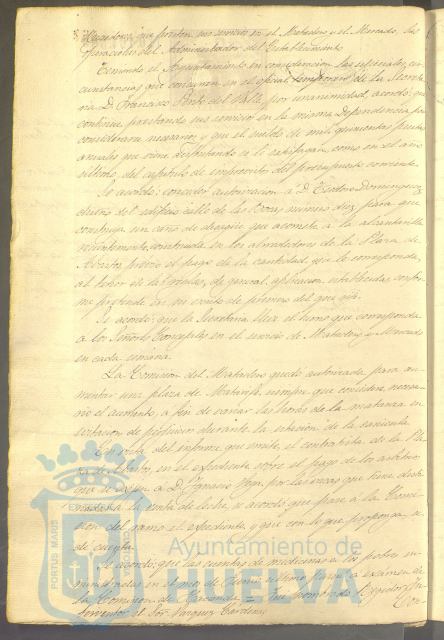 que presten sus servicios en el Matadero y el Mercado, las
operaciones del Administrador del Establecimiento.
Teniendo el Ayuntamiento en consideracion las especiales cir-
cunstancias que concurren en el oficial temporero de la Secreta-
ria D. Francisco del Valle, por unanimidad, acordó, que
continue prestando sus servicios en la misma dependencia por
considerarse necesarios y que el sueldo de mil quinientas pesetas
anuales que viene disfrutando se le satisfagan, como en el año
ultimo, del capitulo de imprevistos del presupuesto corriente.
Se acordó: conceder autorizacion á D. Dominguez
dueño del edificio calle de las Bocas número diez para que
construya un caño de desagüe que acometa á la alcantarilla
recientemente construida en los alrededores de la Plaza de
Abastos, previo el pago de la cantidad que le corresponda,
al tenor de las reglas, de general aplicacion, establecidas
que
Se acordó: que la Secretaria lleve el turno que corresponda
á los Señores Concejales en el servicio de Matadero y Mercado
en cada semana.
La Comision del Matadero quedó autorizada para au-
mentar una plaza de Matarife, siempre que considere necesa-
rio el aumento, á fin de variar las horas de la matanza en
evitacion de perjuicios durante la estacion de la canicula.
En vista del informe que emite el contratista de la Pla-
za de Abastos, en el expediente sobre el pago de los arbitrios
que se exigen á D. Ignacio por las vacas que tiene desti-
nadas á la venta de leche, se acordó que pase á la Comi-
sion del ramo el expediente, y que con lo que proponga se
dé cuenta.
Se acordó: que las cuentas de medicinas á los pobres
en el mes de Junio ultimo pasen á examen de
la Comision de Hacienda
el Sor. Vazquez Cardenas
PORTUS MARIS
Ayuntamiento de
HUELVA